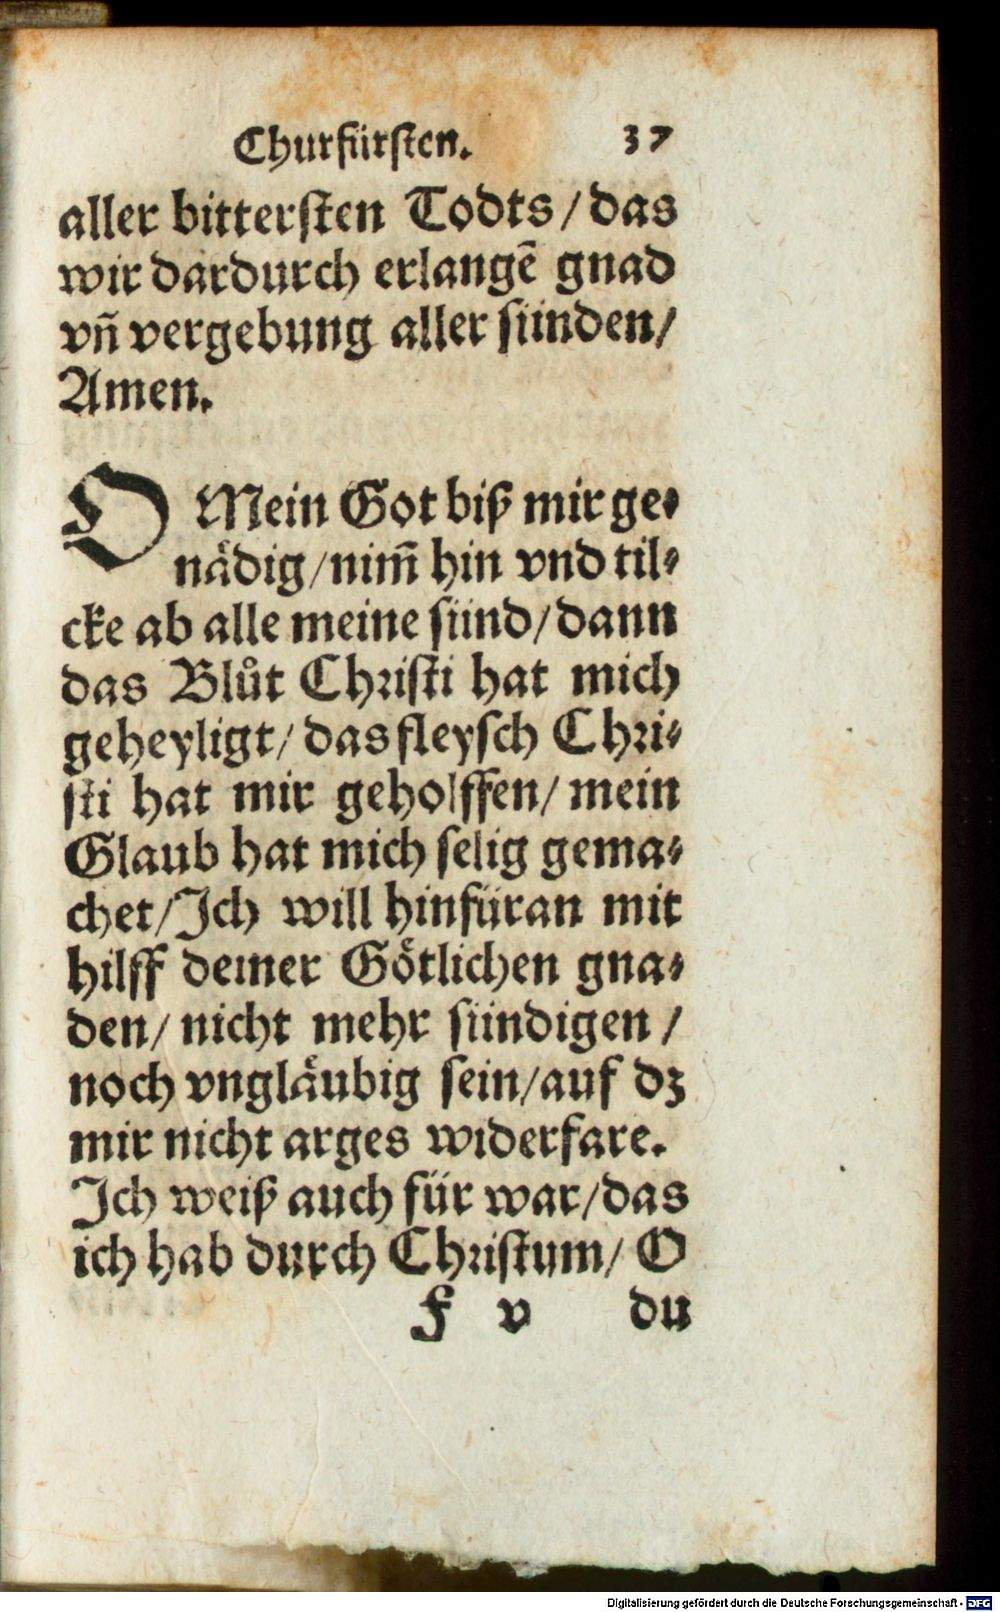 Churfürsten. 37
aller bittersten Todts/das
wir dardurch erlangē gnad
vñ vergebung aller sünden/
Amen.
O Mein Got biß mir ge-
nådig/nim̃ hin vnd til-
cke ab alle meine sünd/dann
das Blůt Christi hat mich
geheyligt/das fleysch Chri-
sti hat mir geholffen/mein
Glaub hat mich selig gema-
chet/Ich will hinfüran mit
hilff deiner Götlichen gna-
den/nicht mehr sündigen/
noch vngläubig sein/auf dz
mir nicht arges widerfare.
Ich weiß auch für war/das
ich hab durch Christum/O
F v du
Digitalisierung gefördert durch die Deutsche Forschungsgemeinschaft - DFG